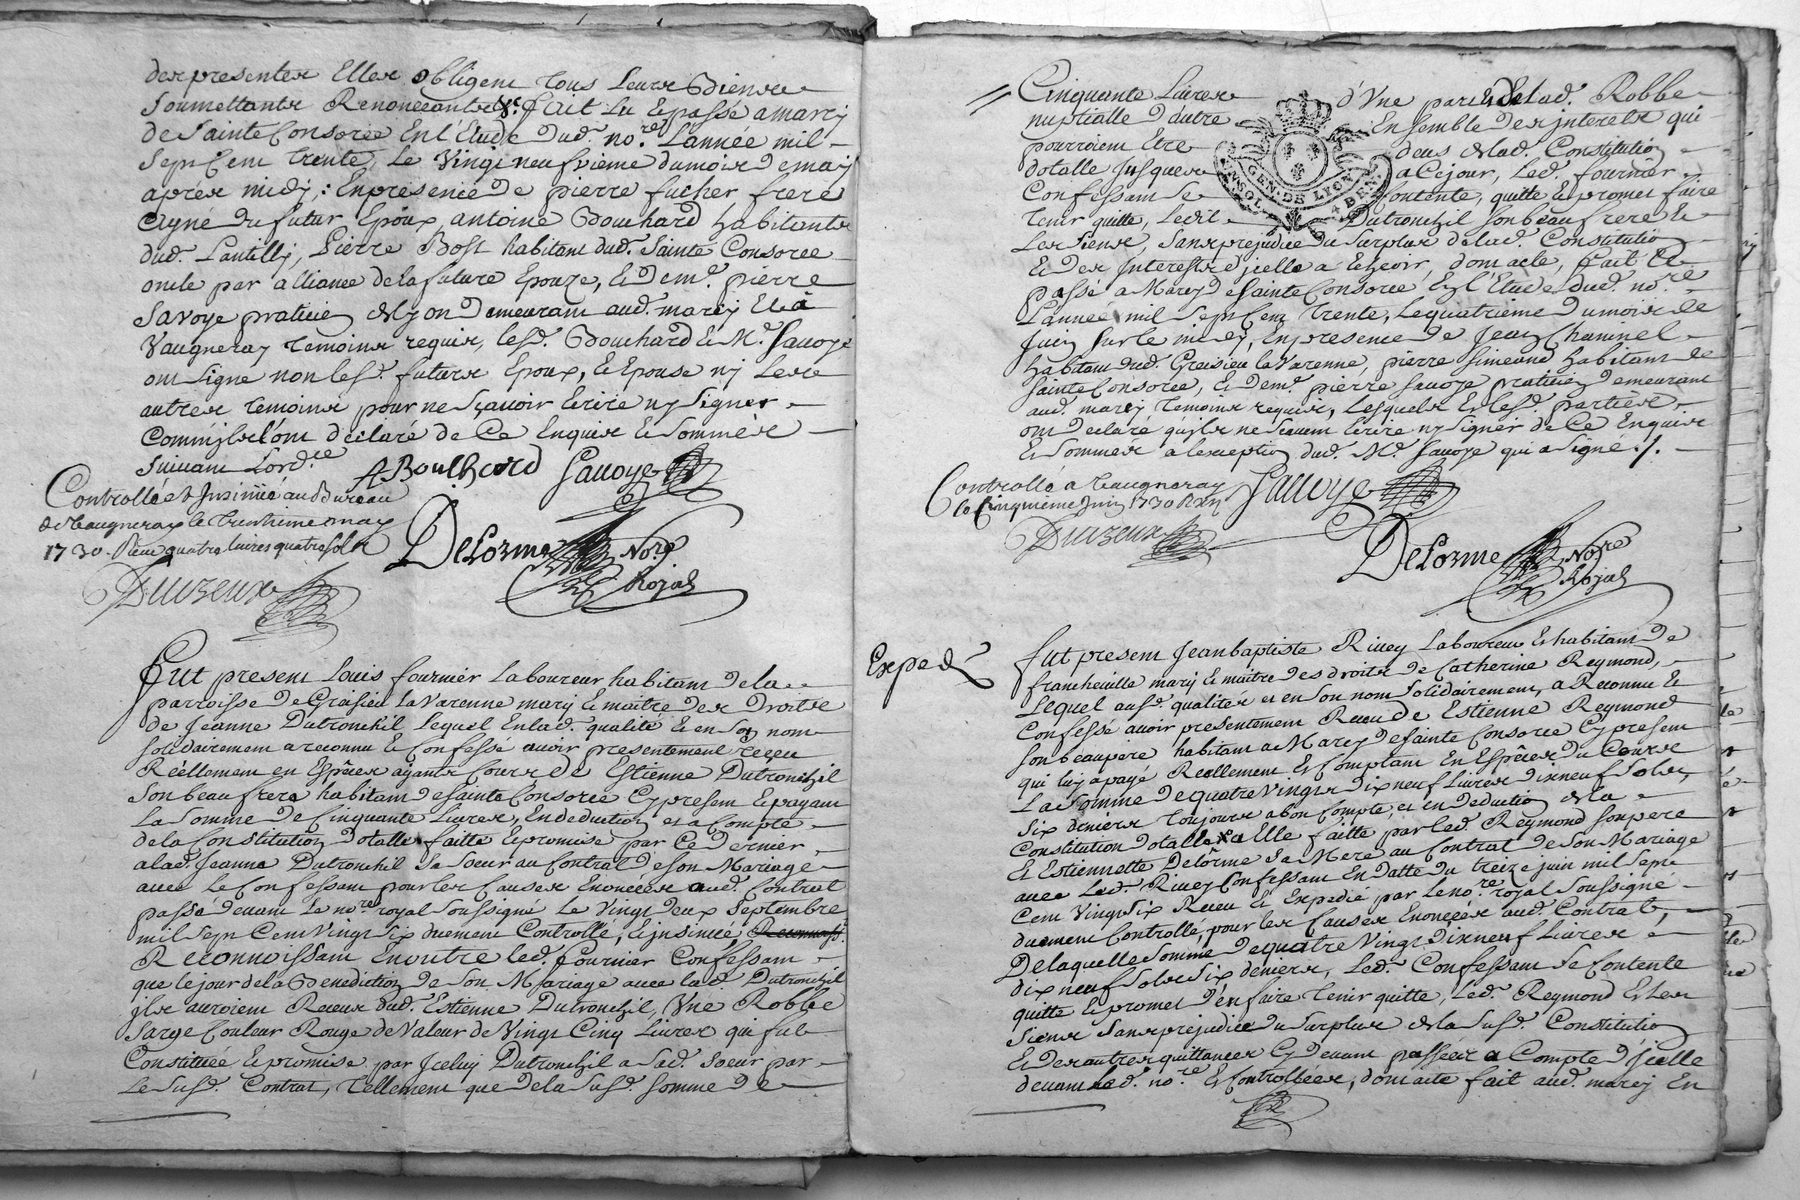 des presentes Elles obligent tous Leurs Biens
Soumettants Renonceants &c. fait Lu Et passé a marcy
de Sainte Consorce En l'Etude dud. no.re L'année mil
Sept Cent trente, Le Vingt neufvieme du mois de may
apres midy, : En presence de pierre fucher frere
ayné du futur Epoux, antoine Bouchard habitants
dud. Lantilly, Pierre Bost habitant dud. Sainte Consorce
oncle par alliance de la future Epouze, Et de m.e pierre
Savoye praticien de Lyon demeurant aud. marcy Et à
Vaugneray temoins requis, Lesd. Bouchard & M.e Savoye
ont signe non Lesd. futurs Epoux, & Epouse ny Les
autres temoins pour ne Sçavoir Ecrire ny Signer
Comm'ils L'ont déclaré de Ce Enquis & Sommés
Suivant L'ord.ce
ABoulhard Savoye
Controllé et Insinüé au Bureau
de Vaugneray le trentieme may
1730. Receu quatre livres quatre sols
Durzeux
DeLorme No.re
Rojal
Fut present Louis fournier Laboureur habitant de la
parroisse de Graisieu La Varenne mary & maitre des Droits
de Jeanne Dutronchil Lequel En lad. qualité & en son nom
solidairement a reconnu & Confessé avoir presentement reçeu
Réellement en Espêces ayants Cours de Estienne Dutronchil
son beau frere habitant de sainte Consorce Cy present & payant
La somme de Cinquante Livres, En deduction et a Compte
de la Constitution dotalle faitte & promise par Ce dernier
a lad. Jeanne Dutronchil Sa Soeur au Contrat de son Mariage
avec Le Confessant pour les Causes Enoncées aud. Contrat
passé devant Le no.re royal soussigné Le Vingt deux Septembre
mil Sept Cent Vingt Six duement Controllé, & insinué,
Reconnoissant En outre led. fournier Confessant
que le jour de la Benediction de Son Mariage avec lad. Dutronchil
ils auroient Receus dud. Estienne Dutronchil, Une Robbe
Sarge Couleur Rouge de Valeur de Vingt Cinq Livres qui fut
Constituée & promise par Jceluy Dutronchil a Sad. Soeur par
Le Susd. Contrat, tellement que de la Susd. somme de
Cinquante Livres d'Une part & de Lad. Robbe
nuptialle d'autre Ensemble des interets qui
pourroient Etre deus de Lad. Constitution
dotalle Jusques a Cejour, Led. fournier
Confessant Se Contente, quitte & promet faire
tenir quitte, Ledit Dutronchil son beau frere &
Les Siens, Sans prejudice du Surplus de Lad. Constitution
GEN. DE LYON
4 DEN.
& des Interests d'jcelle a Echeoir, dont acte, fait &
passé a Marcy de Sainte Consorce En L'Etude dud. no.re
L'année mil Sept Cent trente, Le quatrieme du mois de
Juin Sur le midy, En presence de Jean Chaminel
habitant dud. Greisieu la Varenne, pierre Simeand habitant de
Sainte Consorce, & de me. pierre Savoye praticien demeurant
aud. marcy temoins requis, Lesquels & Lesd. parties
ont declaré qu'ils ne Scavent Ecrire ny signer de Ce Enquis
& Sommes a l'exception dud. M.e Savoye qui a Signé ./.
Controllé a Vaugneray Savoye
le Cinquième Juin 1730
Durzeux
DeLorme No.re
Rojal
Exped.
Fut present Jean baptiste Rivey Laboureur & habitant de
francheville mary & maitre des droits de Catherine Reymond,
Lequel ausd. qualités et en Son nom solidairement, a Reconnu &
Confessé avoir presentement Receu de Estienne Reymond
son beaupere habitant a Marcy de Sainte Consorce Cy present
qui luy a payé Reellement & Comptant En Espêces du Cours
La Somme de quatre Vingts dix neuf Livres dix neuf Sols,
Six deniers toujours a bon Compte, et en deduction de La
Constitution dotalle a Elle faitte par led. Reymond Son pere
& Estiennette Delôrme Sa Mere au Contrat de Son Mariage
avec Led. Rivey Confessant En datte du treize juin mil Sept
Cent Vingt Six Receu & Expedié par Le no.re royal Soussigné
duement Controllé, pour les Causes Enoncées aud. Contrat,
De laquelle Somme de quatre Vingt dix neuf Livres
dix neuf Sols Six deniers, Led. Confessant Se Contente
quitte & promet d'en faire tenir quitte, Led. Reymond & Les
Siens Sans prejudice du Surplus de La Susd. Constitution
& des autres quittances Cy devant passées a Compte d'jcelle
devant Led. no.re & Controllées, dont acte fait aud. marcy En